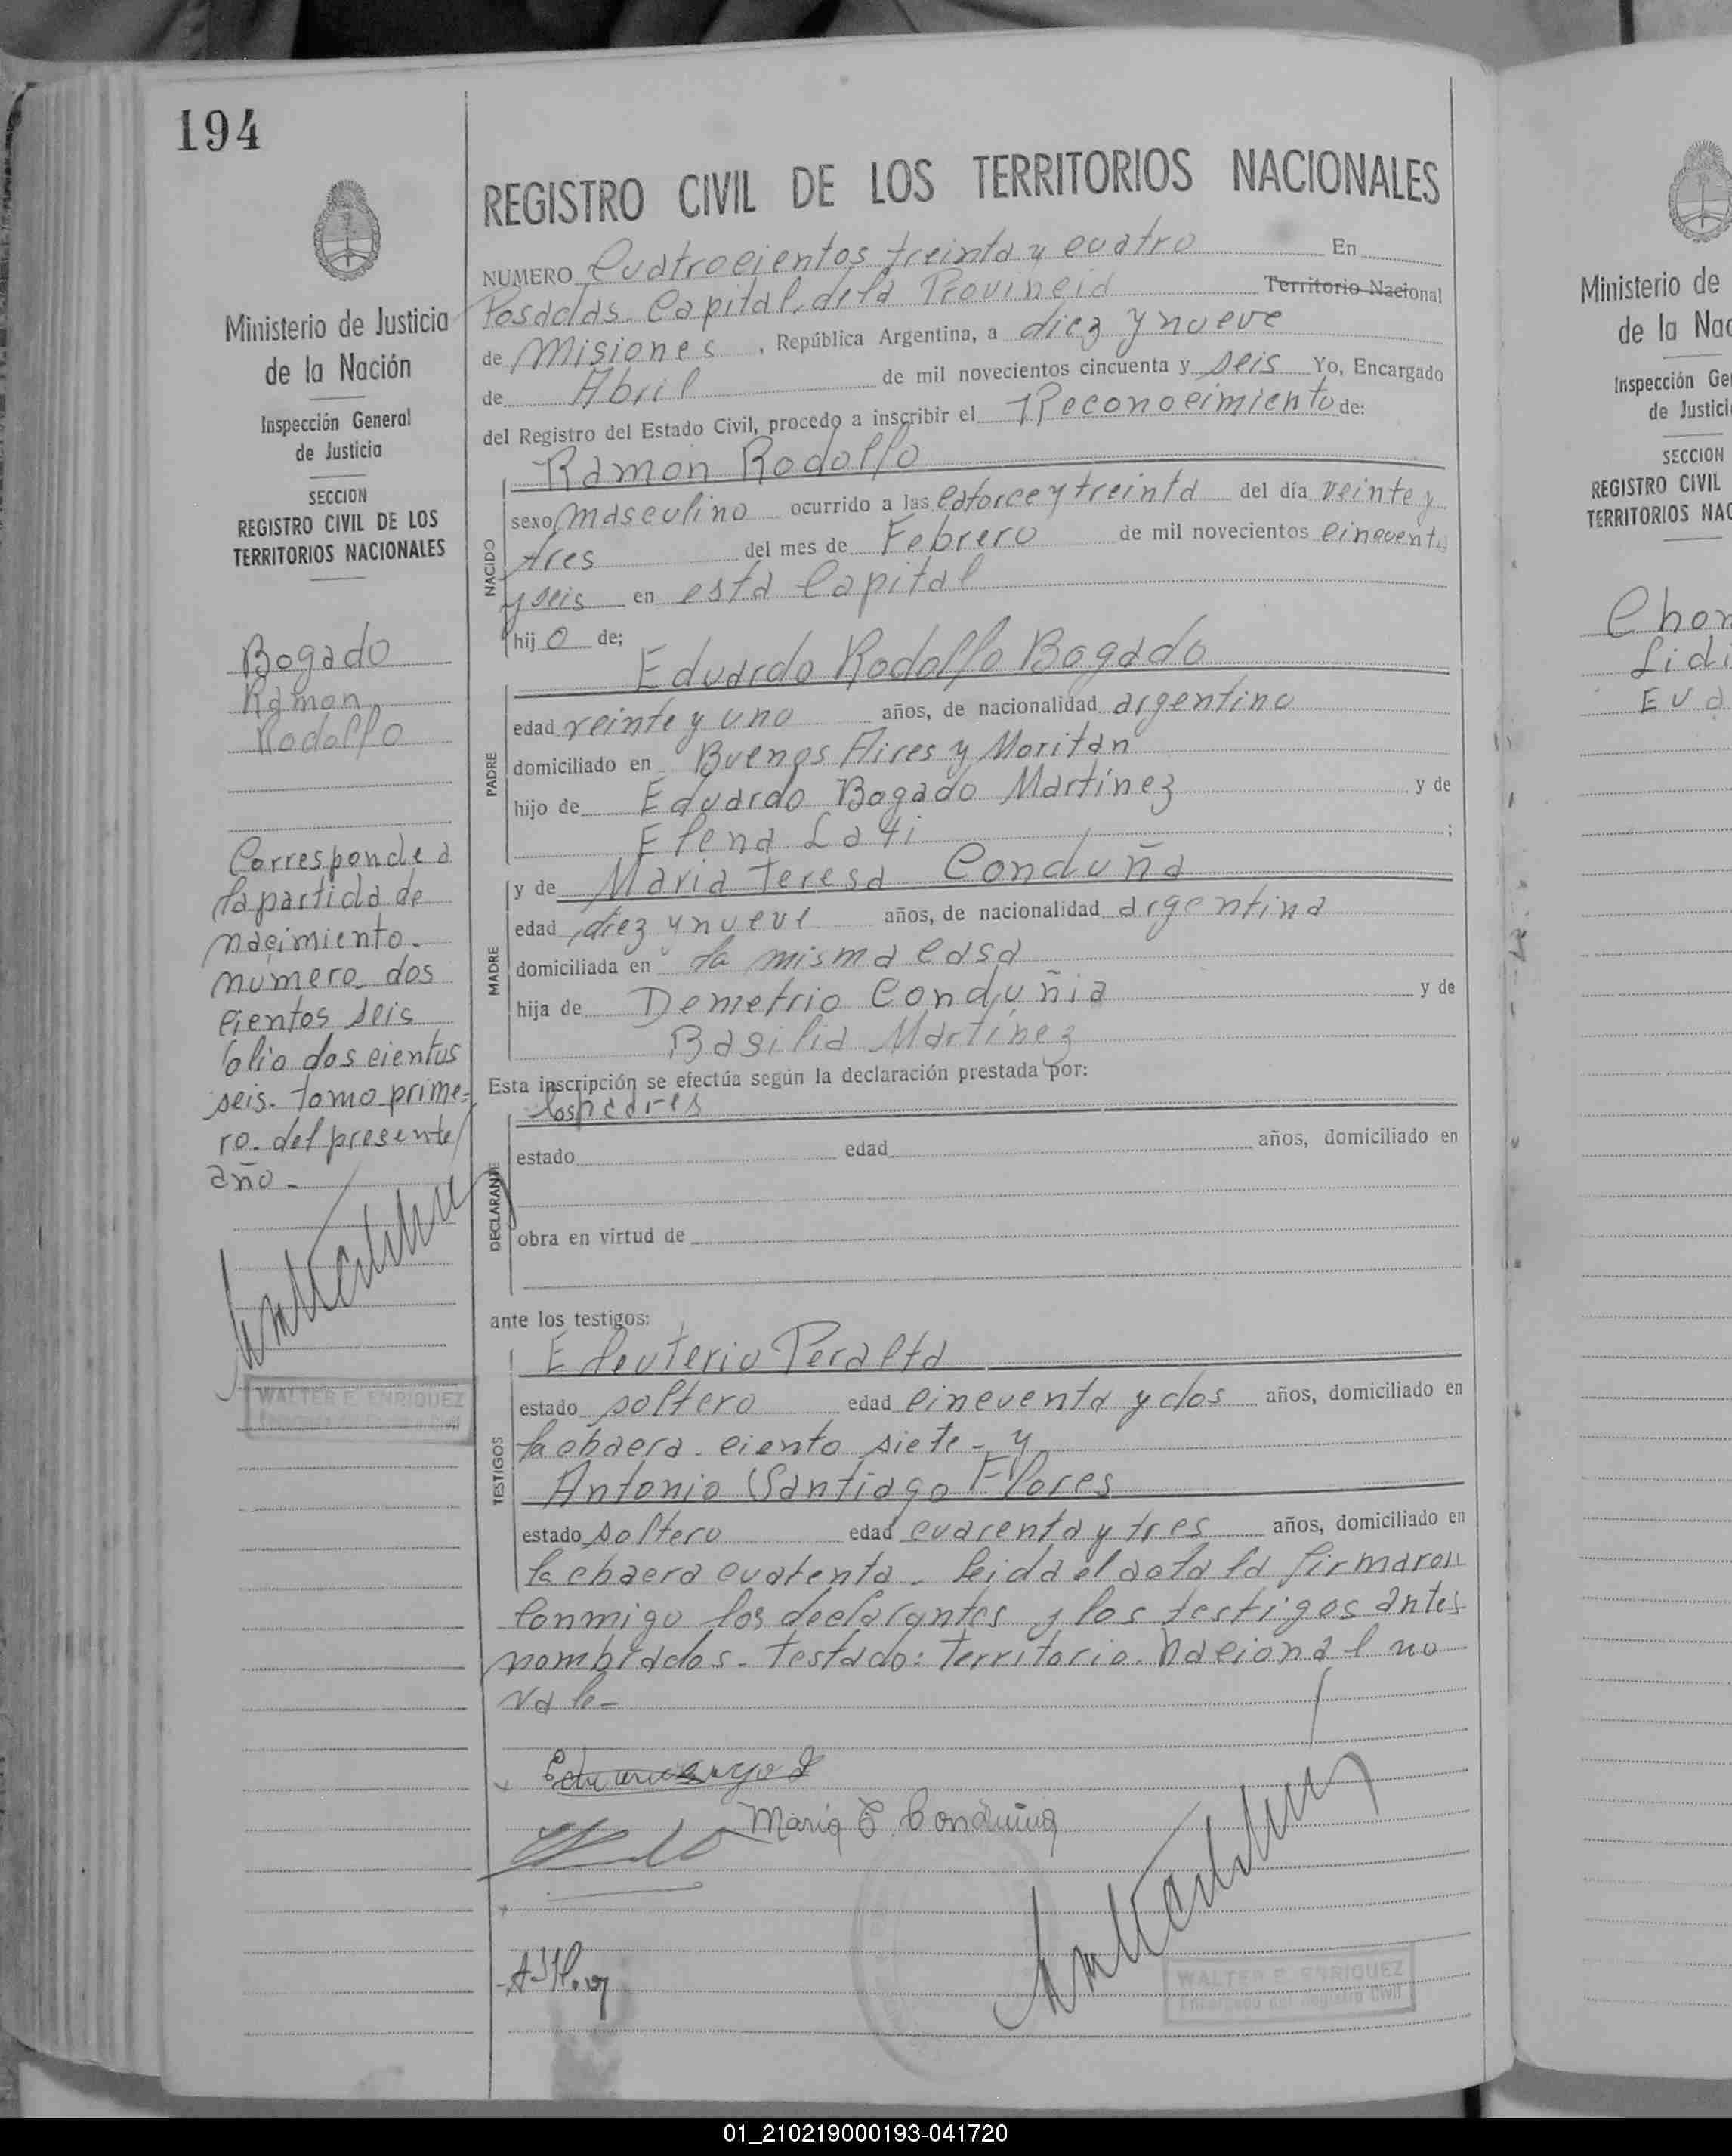 194
Ministerio de Justicia
de la Nación
Inspección General
de Justicia
SECCION
REGISTRO CIVIL DE LOS
TERRITORIOS NACIONALES
Bogado
Ramon
Rodolfo
Corresponde a
la partida de
nacimiento.
número dos
cientos seis
folio dos cientos
seis. tomo prime-
ro. del presente
año -
WALTER E. ENRIQUEZ
Encargado del Registro Civil
REGISTRO CIVIL DE LOS TERRITORIOS NACIONALES
NUMERO Cuatrocientos treinta y cuatro En
Posadas. Capital de la Provincia Territorio Nacional
de Misiones , República Argentina, a diez y nueve
de Abril de mil novecientos cincuenta y seis Yo, Encargado
del Registro del Estado Civil, procedo a inscribir el Reconocimiento de:
Ramon Rodolfo
NACIDO
sexo masculino ocurrido a las catorce y treinta del día veinte y
tres del mes de Febrero de mil novecientos cincuenta
y seis en esta Capital
hij o de;
Eduardo Rodolfo Bogado
PADRE
edad veinte y uno años, de nacionalidad argentino
domiciliado en Buenos Aires y Moritan
hijo de Eduardo Bogado Martínez y de
Elena Lati ;
y de Maria Teresa Conduña
MADRE
edad diez y nueve años, de nacionalidad argentina
domiciliada en la misma casa
hija de Demetrio Conduñia y de
Basilia Martínez
Esta inscripción se efectúa según la declaración prestada por:
los padres
DECLARANTE
estado edad años, domiciliado en
obra en virtud de
ante los testigos:
Eleuterio Peralta
TESTIGOS
estado soltero edad cincuenta y dos años, domiciliado en
la chacra ciento siete - y
Antonio Santiago Flores
estado soltero edad cuarenta y tres años, domiciliado en
la chacra cuarenta. Leida el acta la firmaron
conmigo los declarantes y los testigos antes
nombrados. Testado: Territorio Nacional no
vale -
Maria T. Conduñia
A S Flores
WALTER E. ENRIQUEZ
Encargado del Registro Civil
Ministerio de
de la Nac
Inspección Ge
de Justici
SECCION
REGISTRO CIVIL
TERRITORIOS NAC
Lidi
Eva
01_210219000193-041720